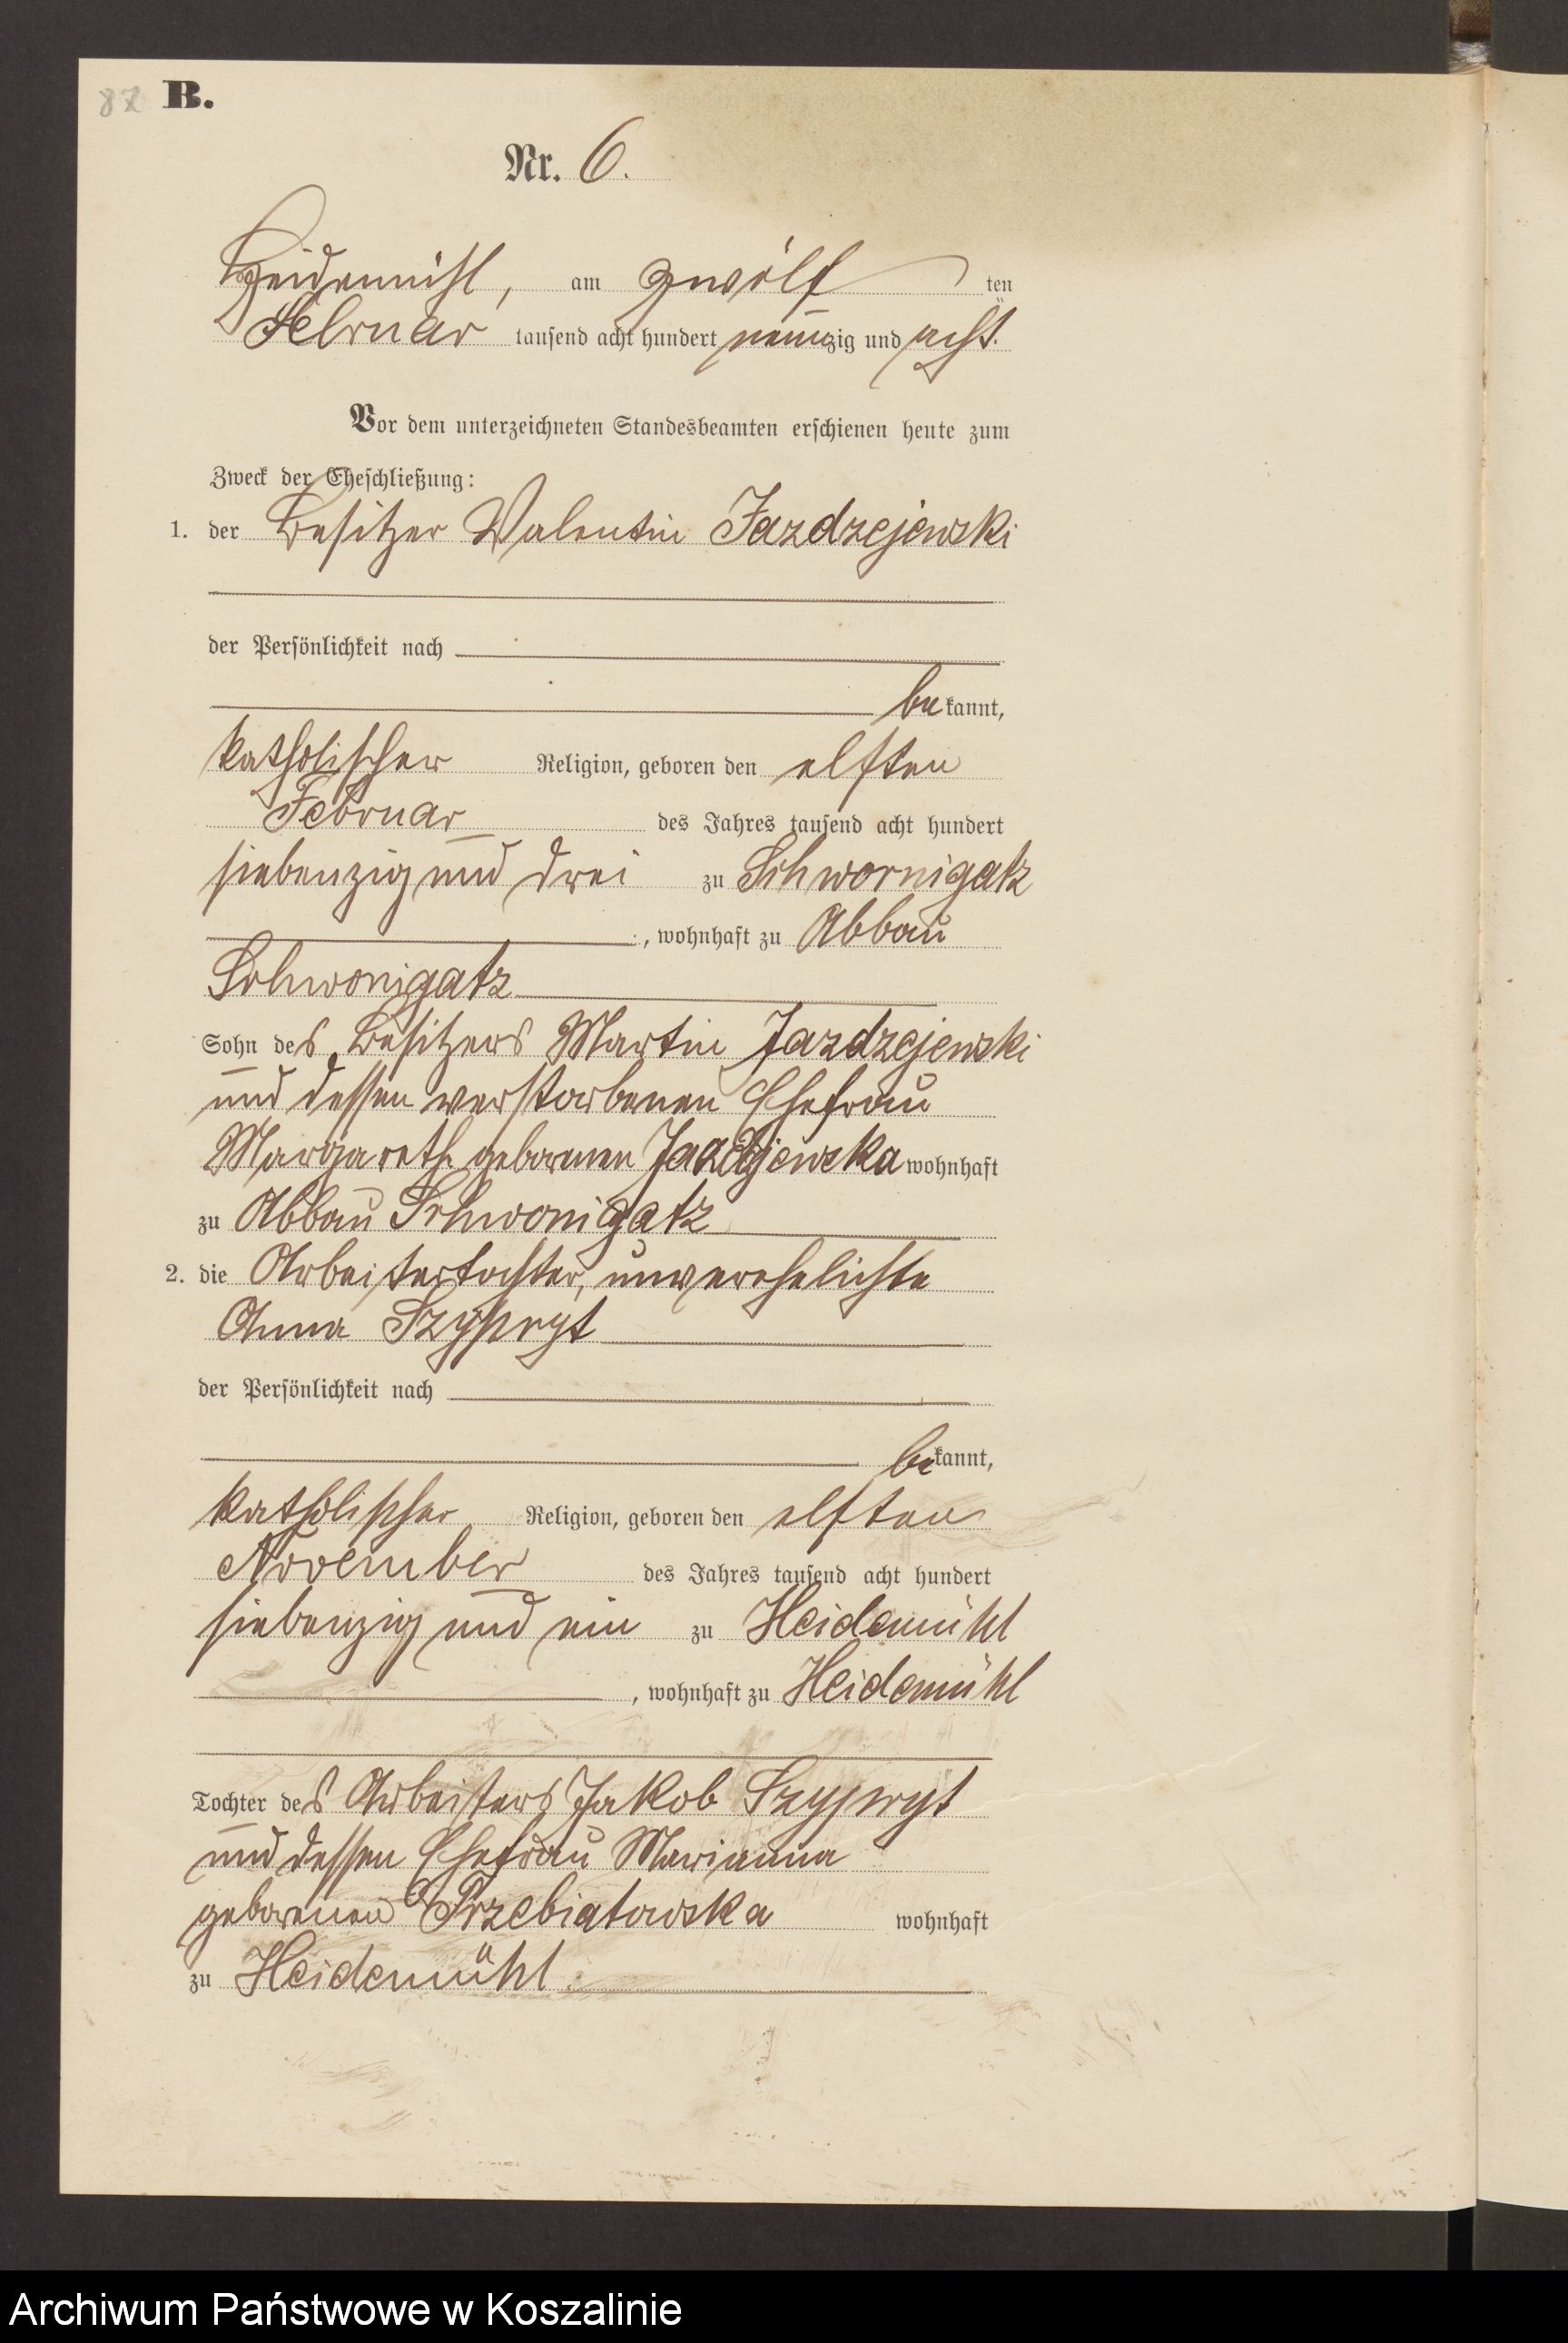 87 B.
Nr. 6.
Heidemühl, am zwölf ten
Februar tausend acht hundert neunzig und acht.
Vor dem unterzeichneten Standesbeamten erschienen heute zum
Zweck der Eheschließung:
1. der Besitzer Valentin Jazdzejewski
der Persönlichkeit nach
bekannt,
katholischer Religion, geboren den elften
Februar des Jahres tausend acht hundert
siebenzig und drei zu Schwornigatz
, wohnhaft zu Abbau
Schwonigatz
Sohn des Besitzers Martin Jazdzejewski
und dessen verstorbenen Ehefrau
Margareth geborenen wohnhaft
zu Abbau Schwonigatz
2. die Arbeitertochter, unverehelichte
Anna Szypryt
der Persönlichkeit nach
bekannt,
katholischer Religion, geboren den elften
November des Jahres tausend acht hundert
siebenzig und ein zu Heidemühl
, wohnhaft zu Heidemühl
Tochter des Arbeiters Jakob Szypryt
und dessen Ehefrau Marianna
geborenen Przebiatowska wohnhaft
zu Heidemühl.
Archiwum Państwowe w Koszalinie